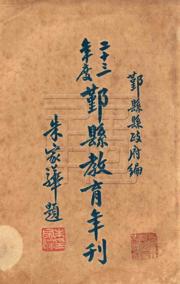 鄞縣縣政府編
二十三年度鄞縣教育年刊
朱家驊題